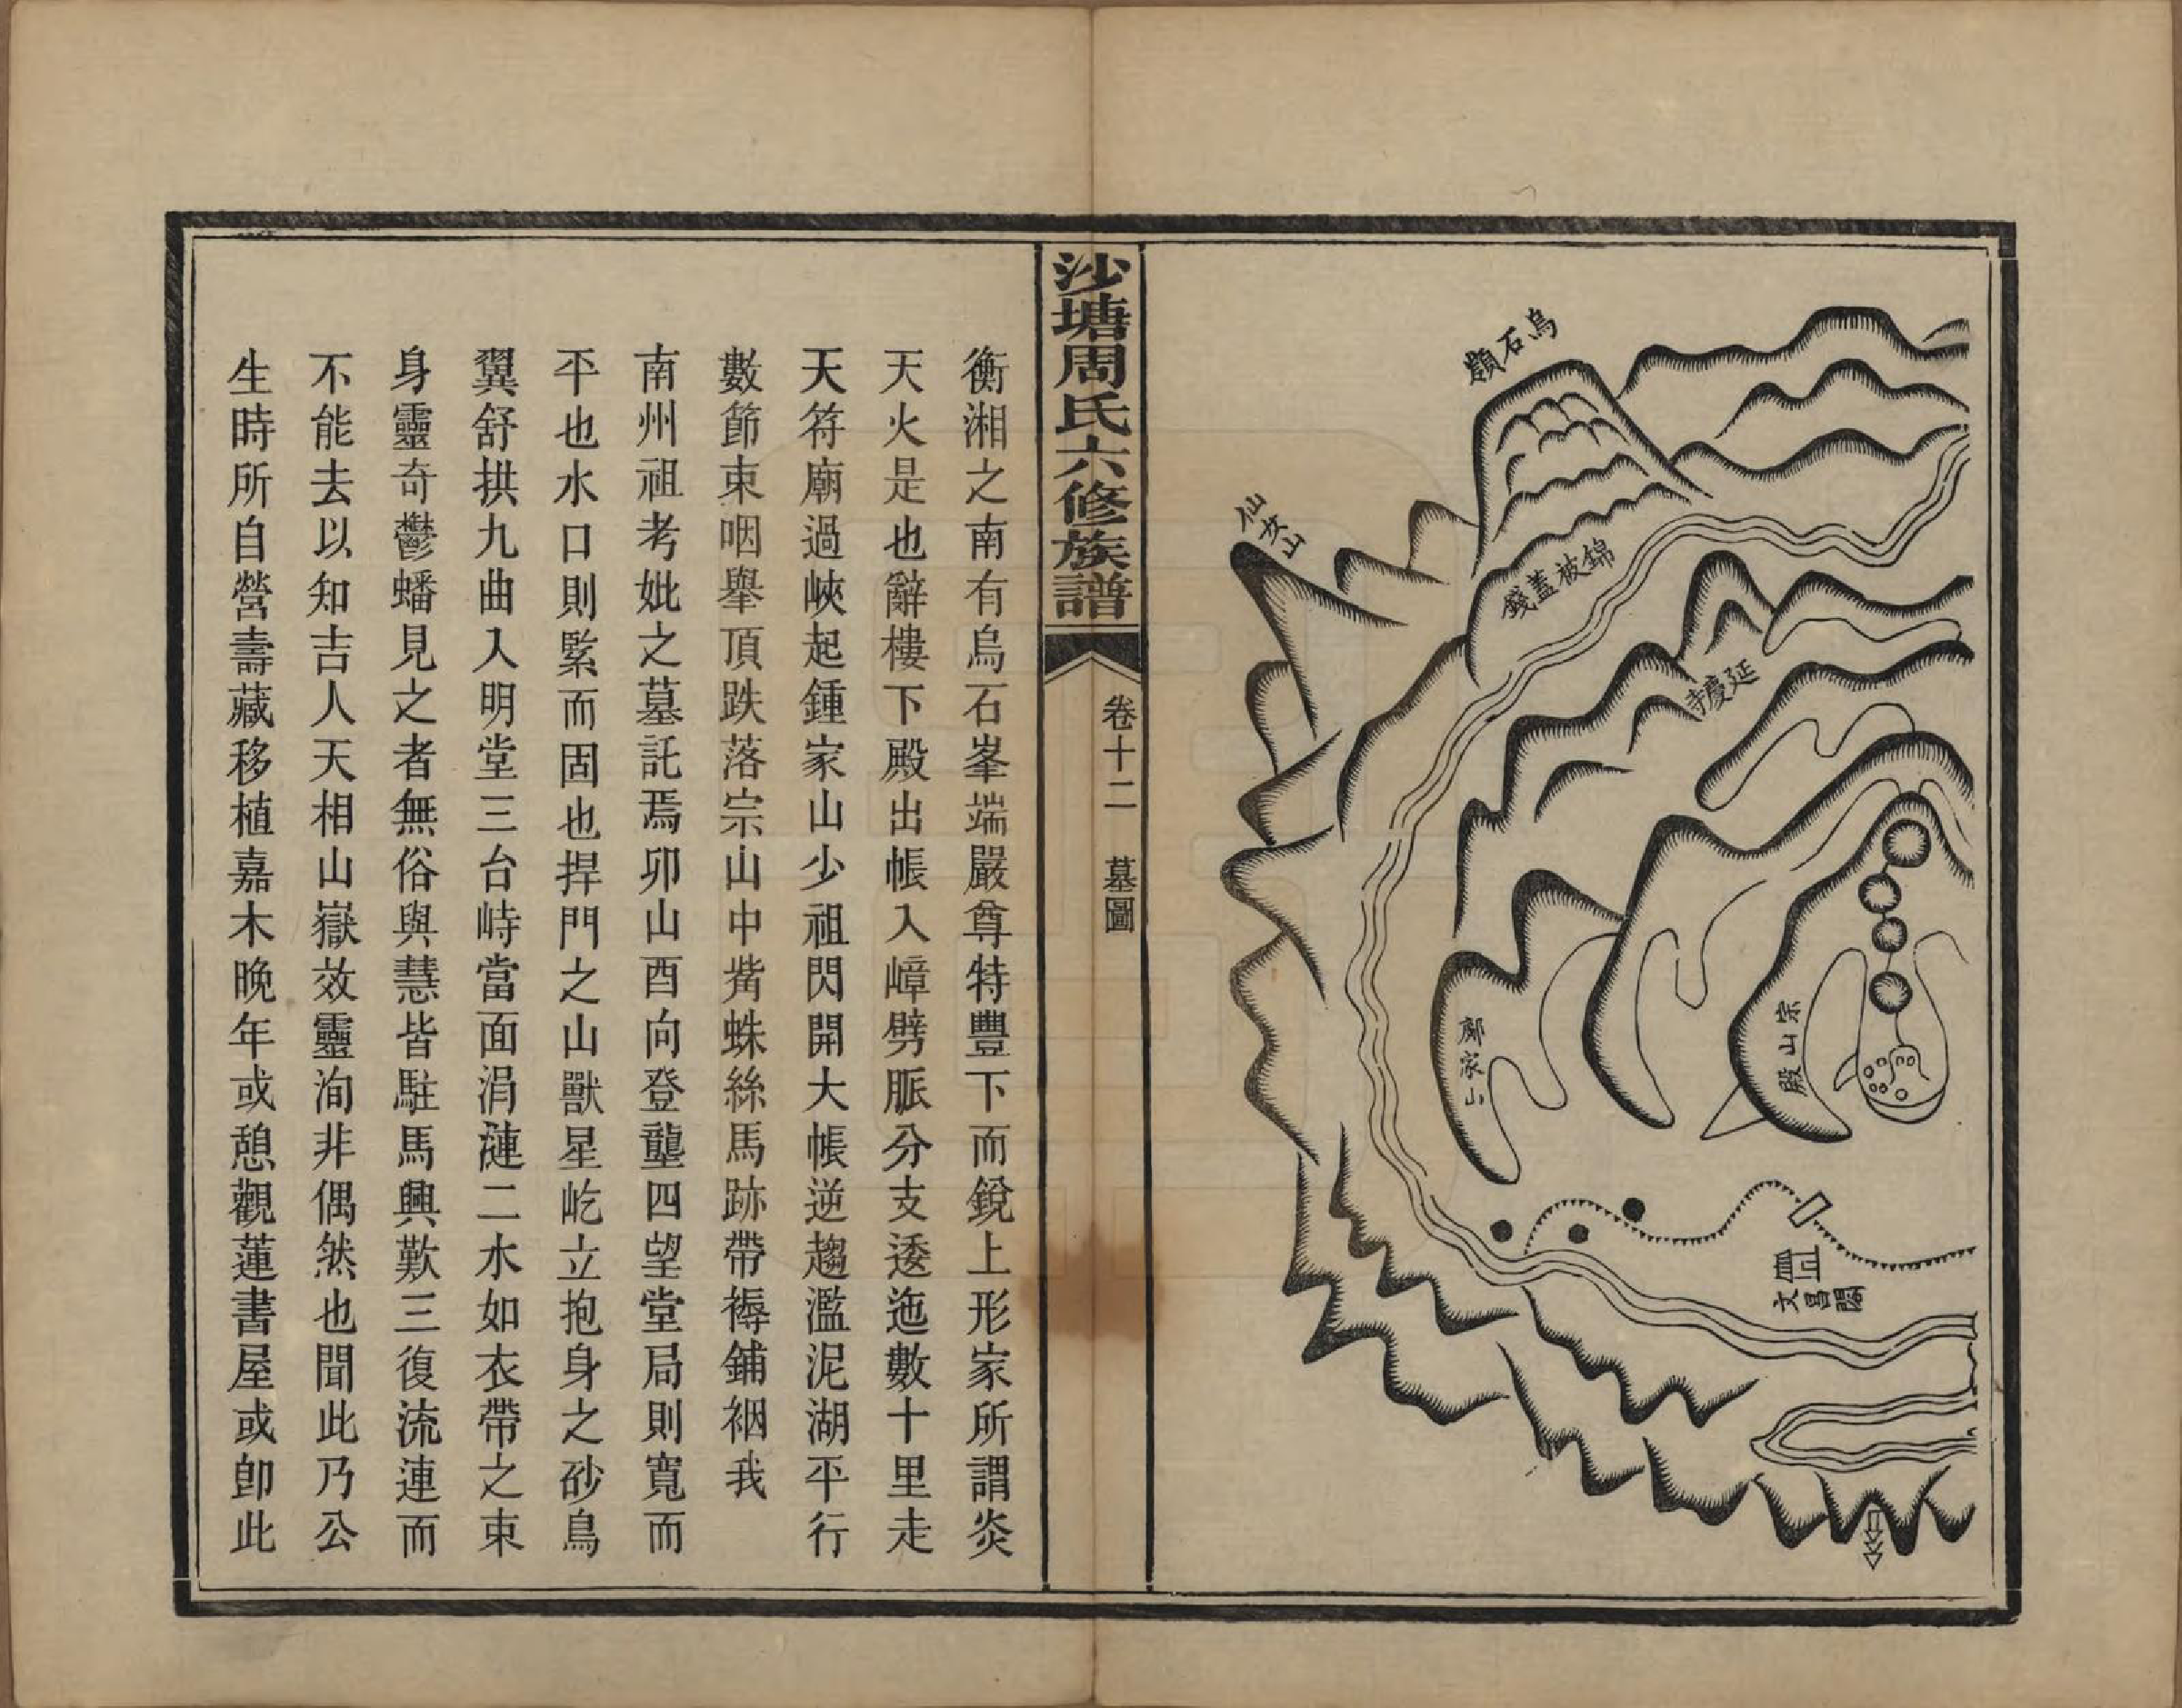 烏石顛
仙女山
錦被蓋錢
延慶寺
宗山殿
廓家山
文昌閣
沙塘周氏六修族譜
卷十二
墓圖
衡湘之南有烏石峯端嚴尊特豐下而銳上形家所謂炎
天火是也辭樓下殿出帳入嶂劈脈分支逶迤數十里走
天符廟過峽起鍾家山少祖閃開大帳逆趨濫泥湖平行
數節束咽舉頂跌落宗山中觜蛛絲馬跡帶褥鋪裀我
南州祖考妣之墓託焉卯山酉向登壟四望堂局則寬而
平也水口則緊而固也捍門之山獸星屹立抱身之砂鳥
翼舒拱九曲入明堂三台峙當面涓漣二水如衣帶之束
身靈奇鬱蟠見之者無俗與慧皆駐馬興歎三復流連而
不能去以知吉人天相山嶽效靈洵非偶然也聞此乃公
生時所自營壽藏移植嘉木晚年或憩觀蓮書屋或卽此